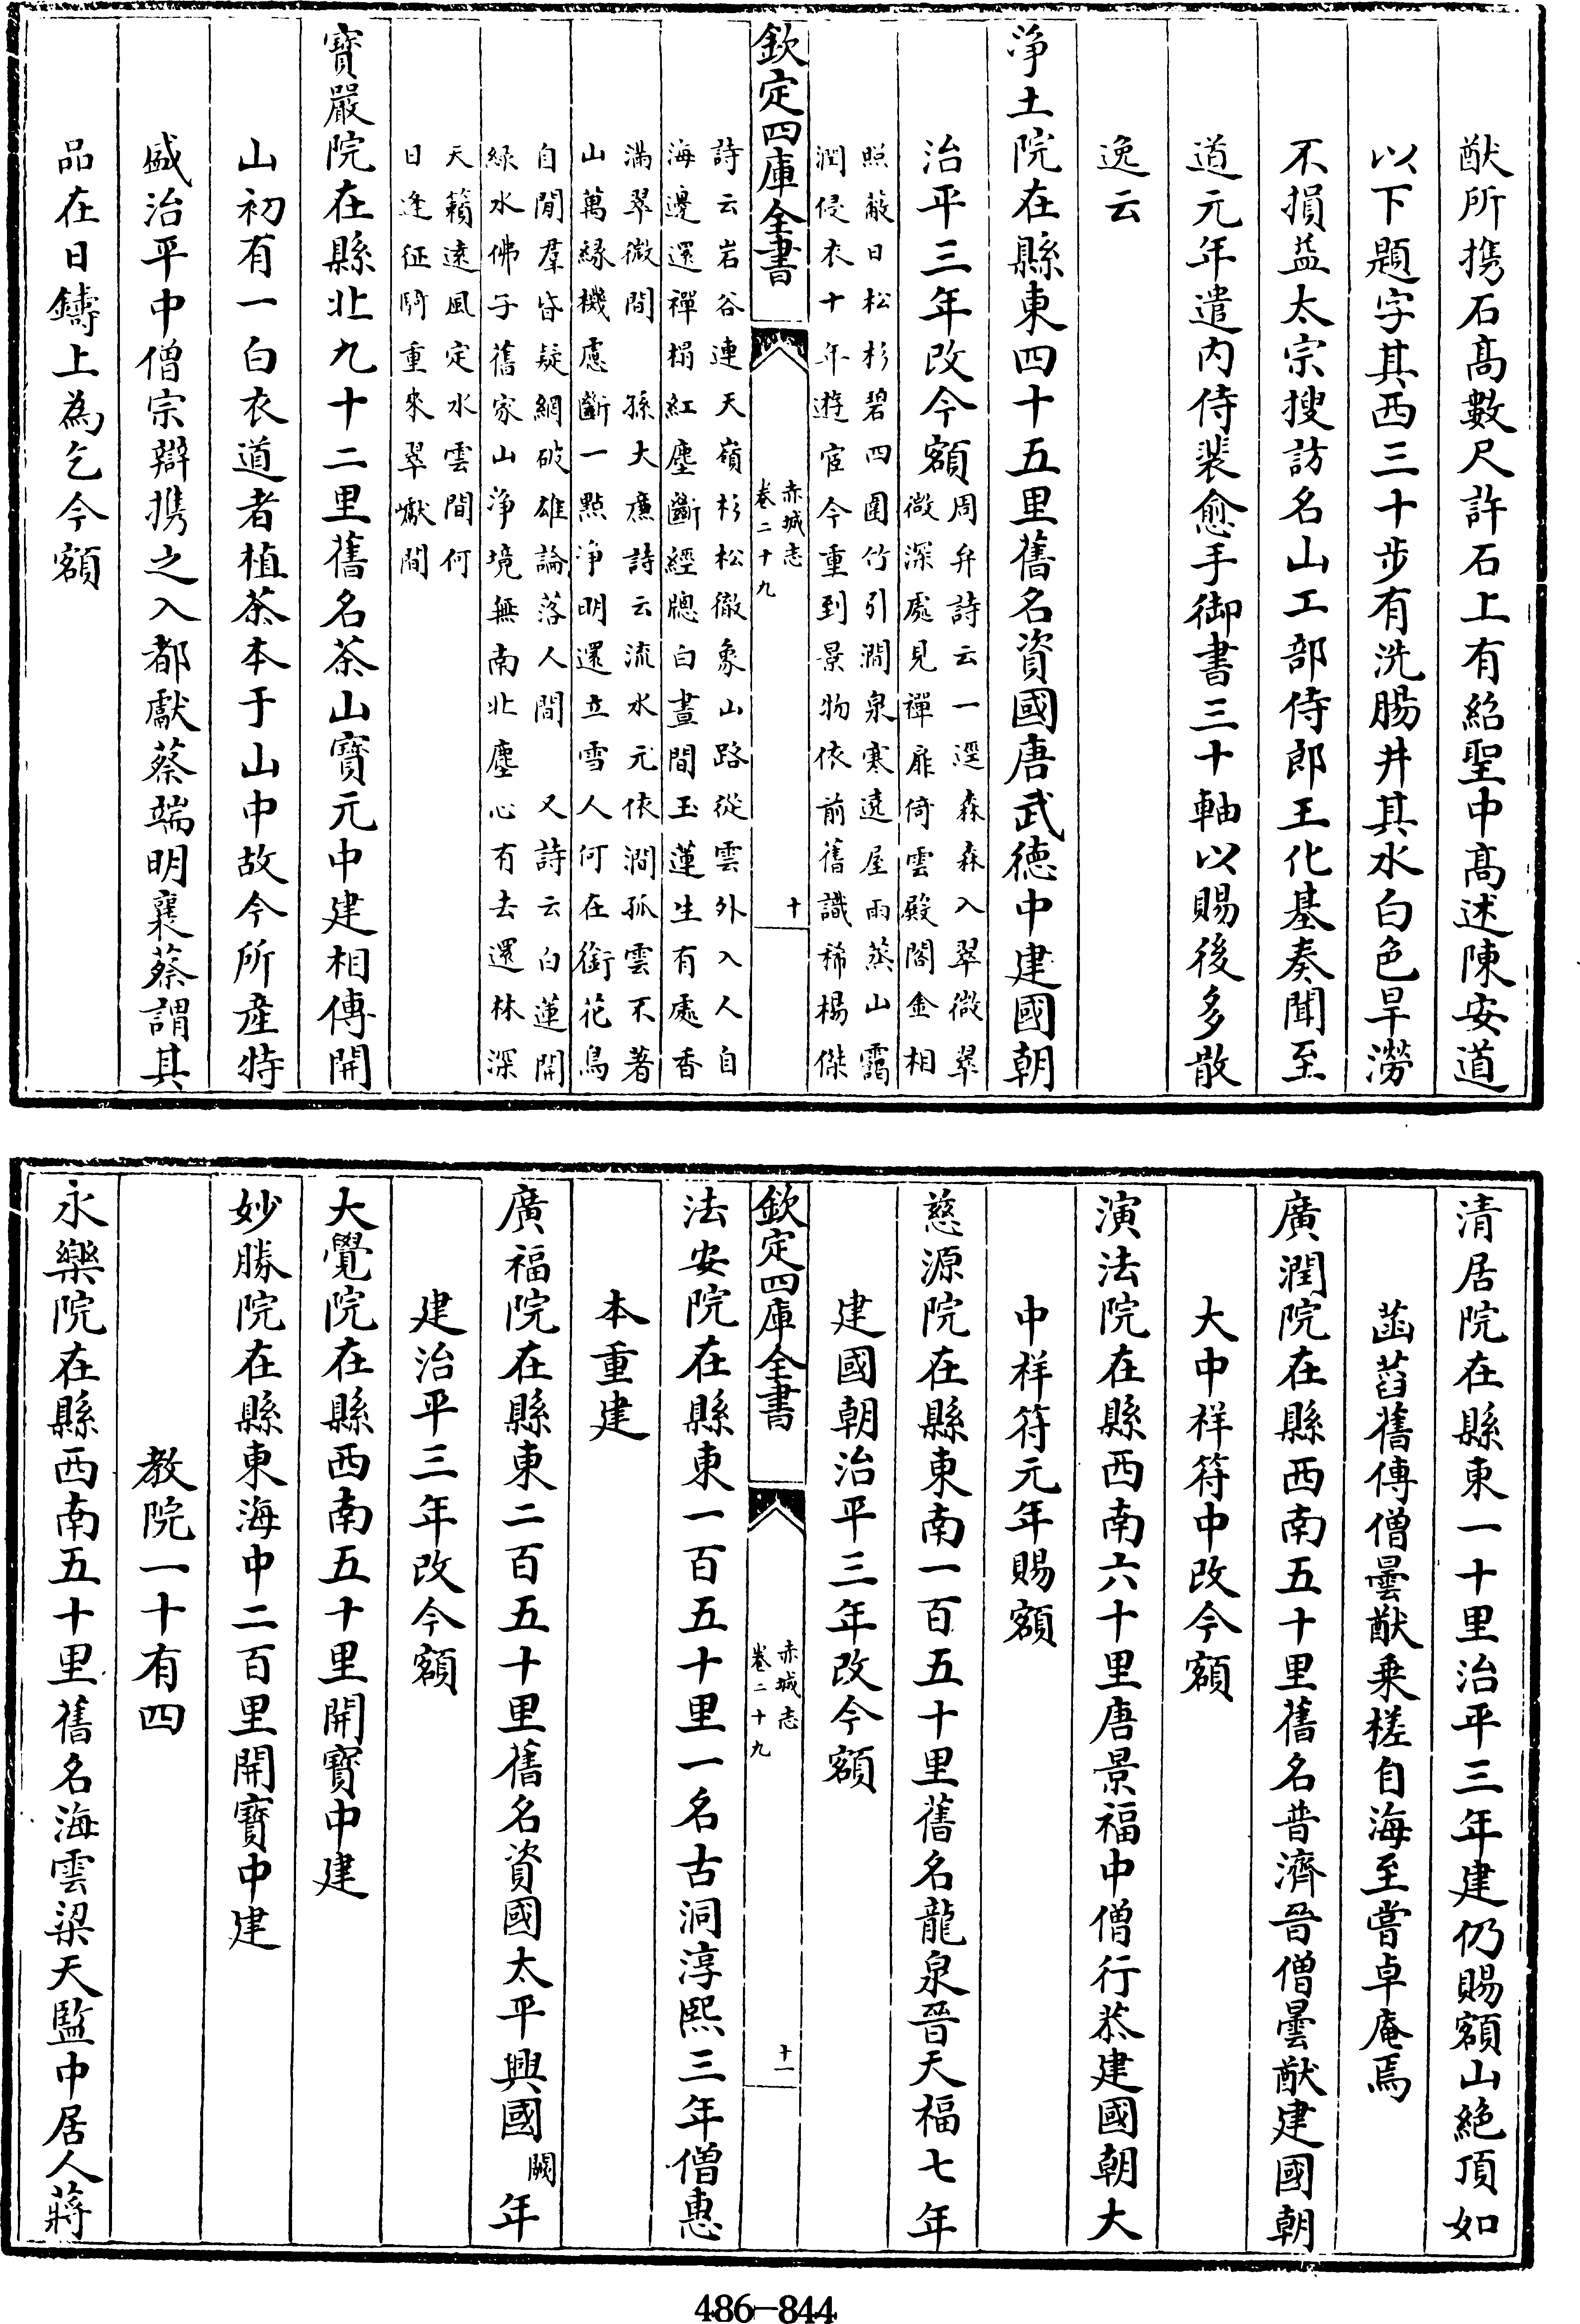 猷所擕石髙數尺許石上有紹聖中髙述陳安道
以下題字其西三十步有洗腸井其水白色旱澇
不損益太宗搜訪名山工部侍郎王化基奏聞至
道元年遣内侍裴愈手御書三十軸以賜後多散
逸云
浄土院在縣東四十五里舊名資國唐武徳中建國朝
治平三年改今額
周弁詩云一逕森森入翠微翠
微深處見禪扉倚雲殿閣金相
照蔽日松杉碧四圍竹引澗泉寒遶屋雨蒸山靄
潤侵衣十年遊宦今重到景物依前舊識稀楊傑
欽定四庫全書
赤城志
卷二十九
十
詩云岩谷連天嶺杉松徹象山路從雲外入人自
海邊還禪榻紅塵斷經牕白晝間玉蓮生有處香
滿翠微間　孫大廉詩云流水元依澗孤雲不著
山萬縁機慮斷一㸃淨明還立雪人何在銜花鳥
自閒羣昏疑網破雄論落人間　又詩云白蓮開
緑水佛子舊家山淨境無南北塵心有去還林深
天籟逺風定水雲間何
日逢征騎重來翠巘間
寳嚴院在縣北九十二里舊名茶山寳元中建相傳開
山初有一白衣道者植茶本于山中故今所産特
盛治平中僧宗辯擕之入都獻蔡端明襄蔡謂其
品在日鑄上為乞今額
清居院在縣東一十里治平三年建仍賜額山絶頂如
菡萏舊傳僧曇猷乗槎自海至嘗卓庵焉
廣潤院在縣西南五十里舊名普濟晉僧曇猷建國朝
大中祥符中改今額
演法院在縣西南六十里唐景福中僧行恭建國朝大
中祥符元年賜額
慈源院在縣東南一百五十里舊名龍泉晉天福七年
建國朝治平三年改今額
欽定四庫全書
赤城志
卷二十九
十一
法安院在縣東一百五十里一名古洞淳熙三年僧惠
本重建
廣福院在縣東二百五十里舊名資國太平興國闕年
建治平三年改今額
大覺院在縣西南五十里開寳中建
妙勝院在縣東海中二百里開寳中建
教院一十有四
永樂院在縣西南五十里舊名海雲梁天監中居人蔣
486-844